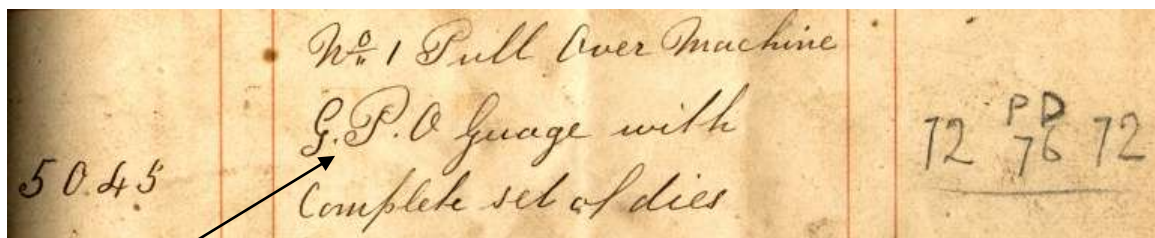 No 1 Pull Over Machine
G.P.O Guage with
Complete set of dies
5045
PD
72 76 72